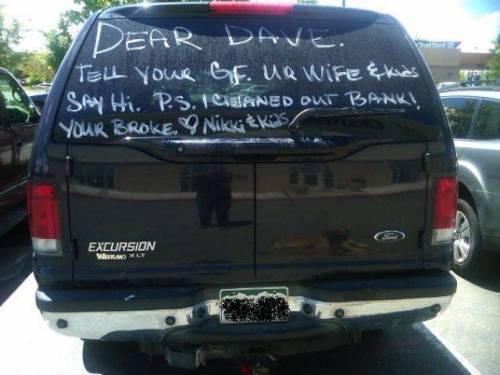 DEAR DAVE.
TELL YOUR GF. UR WIFE & KIDS
SAY HI. P.S. I CLEANED OUT BANK!
YOUR BROKE ♡ NIKKI & KIDS
EXCURSION
XLT
Ford